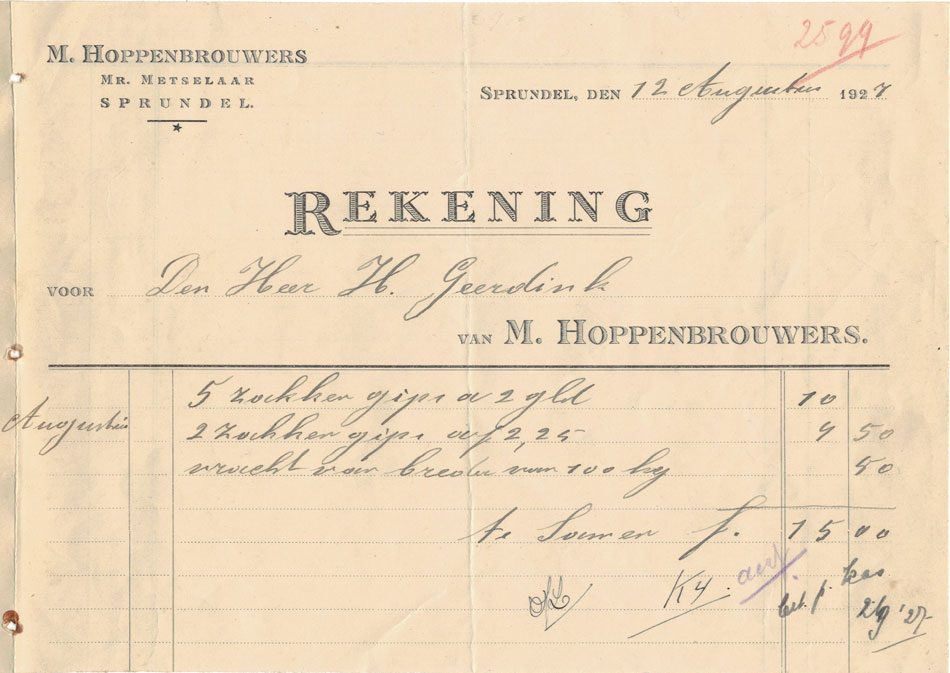 2599
M. HOPPENBROUWERS
MR. METSELAAR
SPRUNDEL.
SPRUNDEL, DEN 12 Augustus 1927
REKENING
VOOR Den Heer H. Geerdink
VAN M. HOPPENBROUWERS.
5 zakken gips a 2 gld 10
Augustus 2 zakken gips a f 2,25 4 50
vracht van breda van 100 kg 50
te Samen f. 15 00
K4.
bet. p. kas
2/9 '27